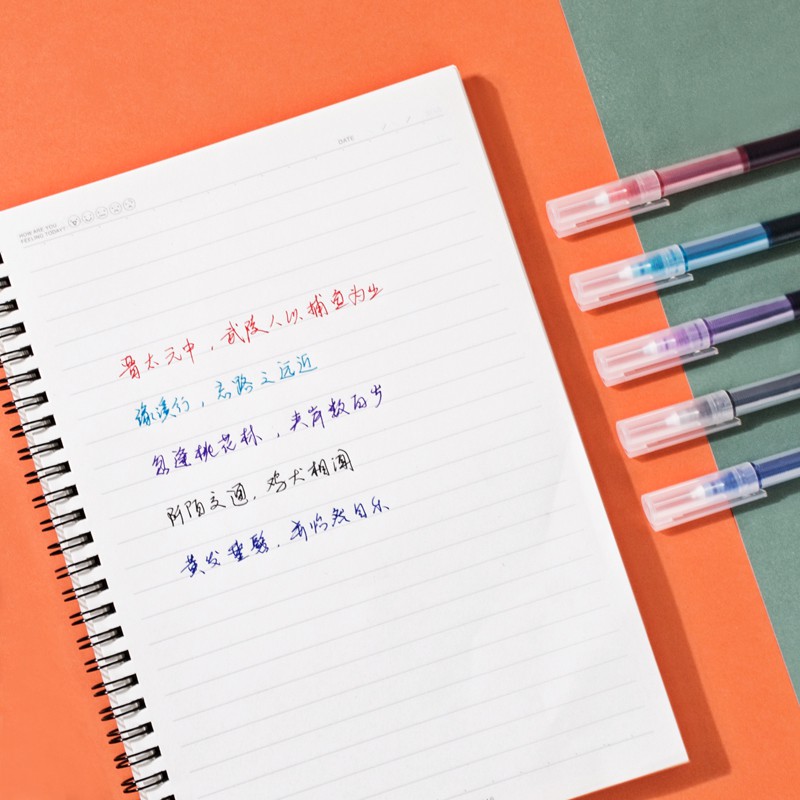 DATE
HOW ARE YOU
FEELING TODAY?
晋太元中，武陵人以捕鱼为业
缘溪行，忘路之远近
忽逢桃花林，夹岸数百步
阡陌交通，鸡犬相闻
黄发垂髫，并怡然自乐